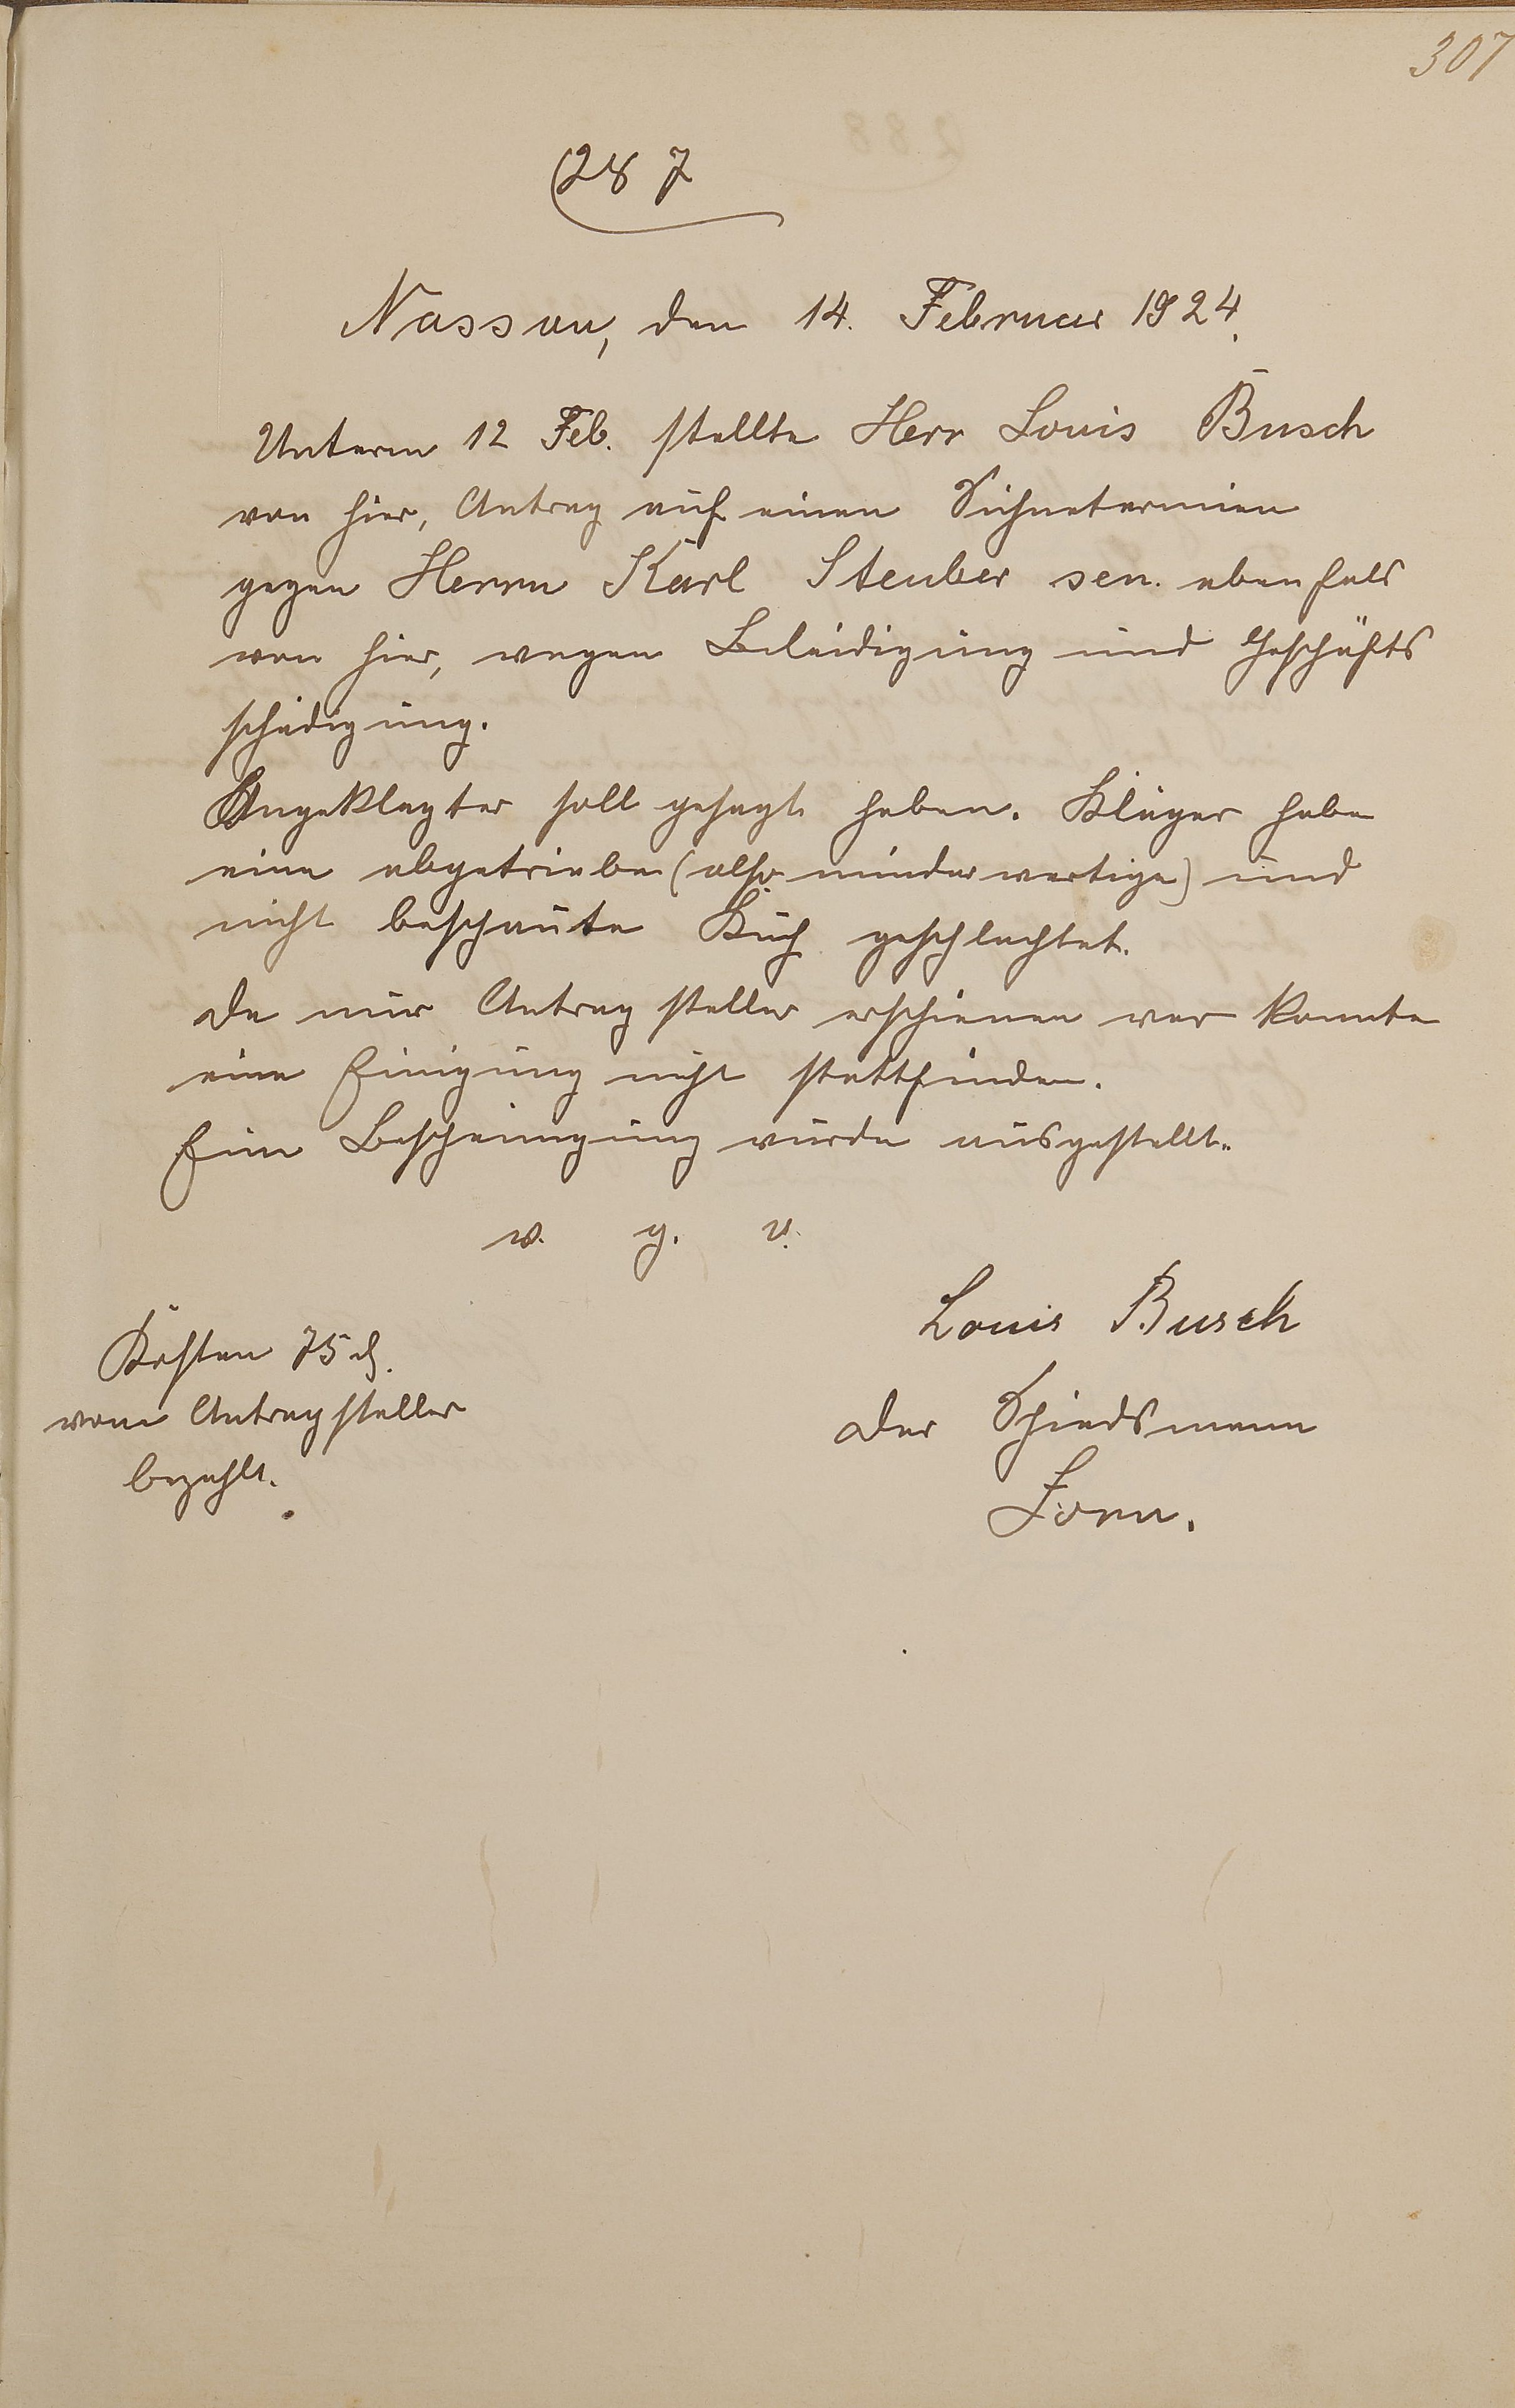 307
287
Nassau, den 14. Februar 1924.
Unterm 12 Feb. stellte Herr Louis Busch
von hier, Antrag auf einen Sühnetermien
gegen Herrn Karl Steuber sen. ebenfals
von hier, wegen Beleidigung und Geschäfts
schädigung.
Angeklagter soll gesagt haben. Kläger habe
eine abgetriebe (also minderwertige) und
nicht beschaute Kuh geschlachtet.
Da nur Antragsteller erschienen war konnte
eine Einigung nicht stattfinden.
Eine Bescheinigung wurde ausgestellt.
v. g. u.
Louis Busch
Kosten 75 ₰.
vom Antragsteller
bezahlt.
Der Schiedsmann
Zorn.